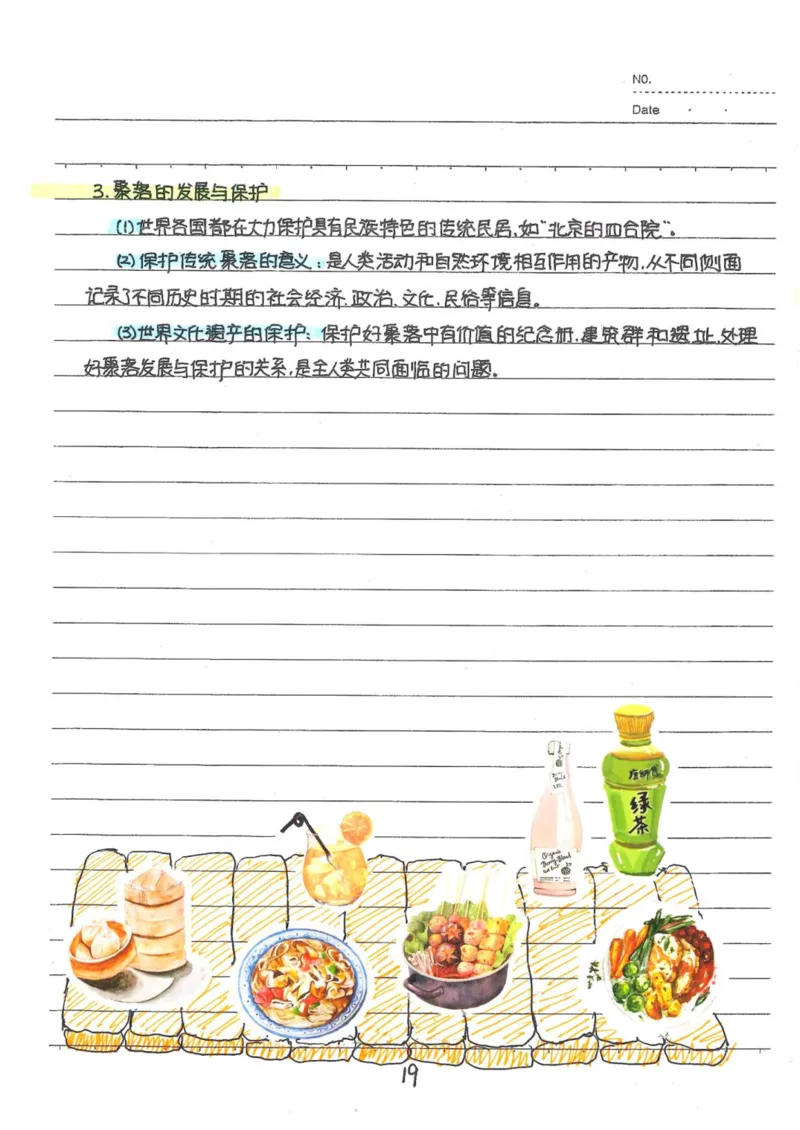 NO.
Date
3.聚落的发展与保护
(1)世界各国都在大力保护具有民族特色的传统民居,如“北京的四合院”。
(2)保护传统聚落的意义:是人类活动和自然环境相互作用的产物,从不同侧面
记录了不同历史时期的社会经济、政治、文化、民俗等信息。
(3)世界文化遗产的保护:保护好聚落中有价值的纪念册,建筑群和遗址,处理
好聚落发展与保护的关系,是全人类共同面临的问题。
绿
茶
Organic
19